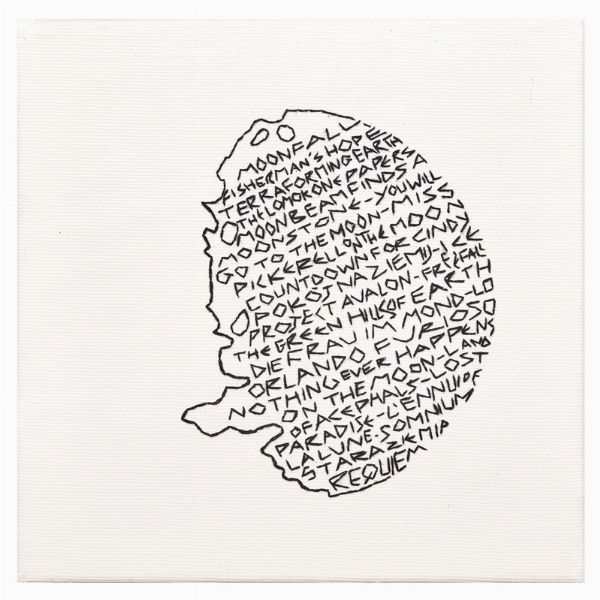 MOONFALL
FISHERMAN'S HOPE
TERRAFORMING EARTH
PAPERS A
MOONBEAM FINDS A
MOONSTONE-YOU WILL
GO TO THE MOON-MISS
PICKERELL ON THE MOON
COUNTDOWN FOR CINDY
POKÓJ NA ZIEMI-
PROJECT AVALON-FREEFALL
THE GREEN HILLS OF EARTH
DIE FRAU IM MOND-
ORLANDO FURIOSO
NOTHING EVER HAPPENS
ON THE MOON-LAND
OF ACEPHALS-LOST
PARADISE-L'ENNUI
LALUNE-SOMNIUM
STARAZIEMIA
REQUIEM